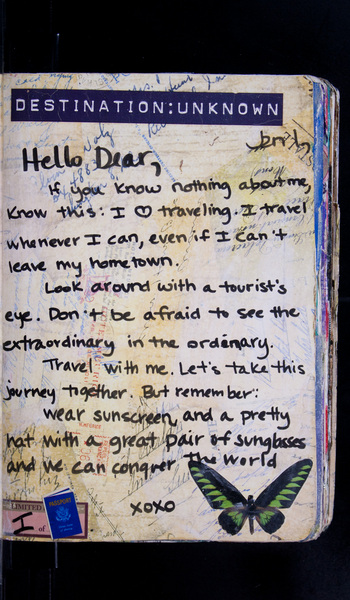 DESTINATION:UNKNOWN
Hello Dear,
If you know nothing about me,
know this: I ♡ traveling. I travel
whenever I can, even if I can't
leave my hometown.
Look around with a tourist's
eye. Don't be afraid to see the
extraordinary in the ordenary.
Travel with me. Let's take this
journey together. But remember:
wear sunscreen and a pretty
hat with a great pair of sunglasses
and we can conquer the world
xoxo
LIMITED
I of
PASSPORT